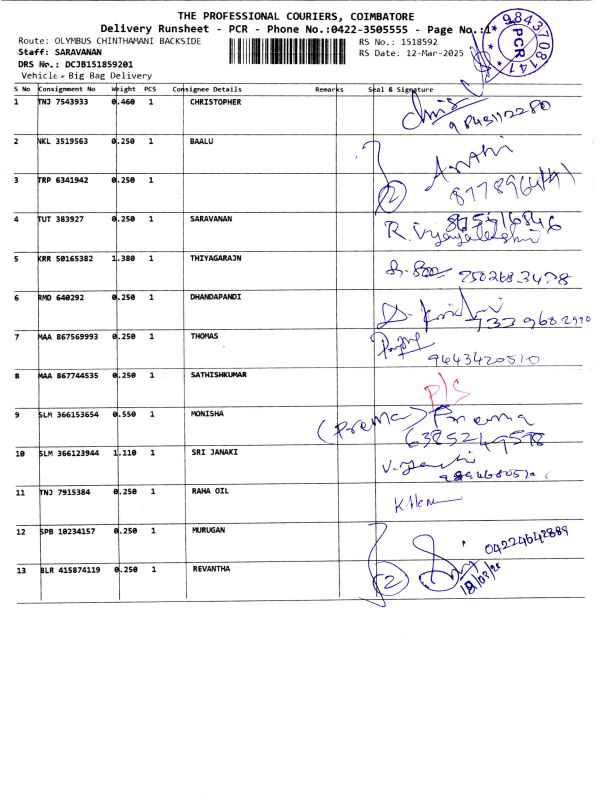 THE PROFESSIONAL COURIERS, COIMBATORE
Delivery Runsheet - PCR - Phone No.:0422-3505555 - Page No.:1
Route: OLYMBUS CHINTHAMANI BACKSIDE
RS No.: 1518592
Staff: SARAVANAN
RS Date: 12-Mar-2025
DRS No.: DCJB151859201
Vehicle - Big Bag Delivery
9843708147
PCR
S No Consignment No Weight PCS Consignee Details Remarks Seal & Signature
1 TNJ 7543933 0.460 1 CHRISTOPHER
Chris
9843112280
2 NKL 3519563 0.250 1 BAALU
3 TRP 6341942 0.250 1
2
4 TUT 383927 0.250 1 SARAVANAN
5 KRR 50165382 1.380 1 THIYAGARAJN
7502683478
6 RMD 640292 0.250 1 DHANDAPANDI
7339682990
7 MAA 867569993 0.250 1 THOMAS
9643420510
8 MAA 867744535 0.250 1 SATHISHKUMAR
P/S
9 SLM 366153654 0.550 1 MONISHA
(Prema) Prema
6385249598
10 SLM 366123944 1.110 1 SRI JANAKI
11 TNJ 7915384 0.250 1 RAHA OIL
12 SPB 10234157 0.250 1 MURUGAN
04224642889
13 BLR 415874119 0.250 1 REVANTHA
2